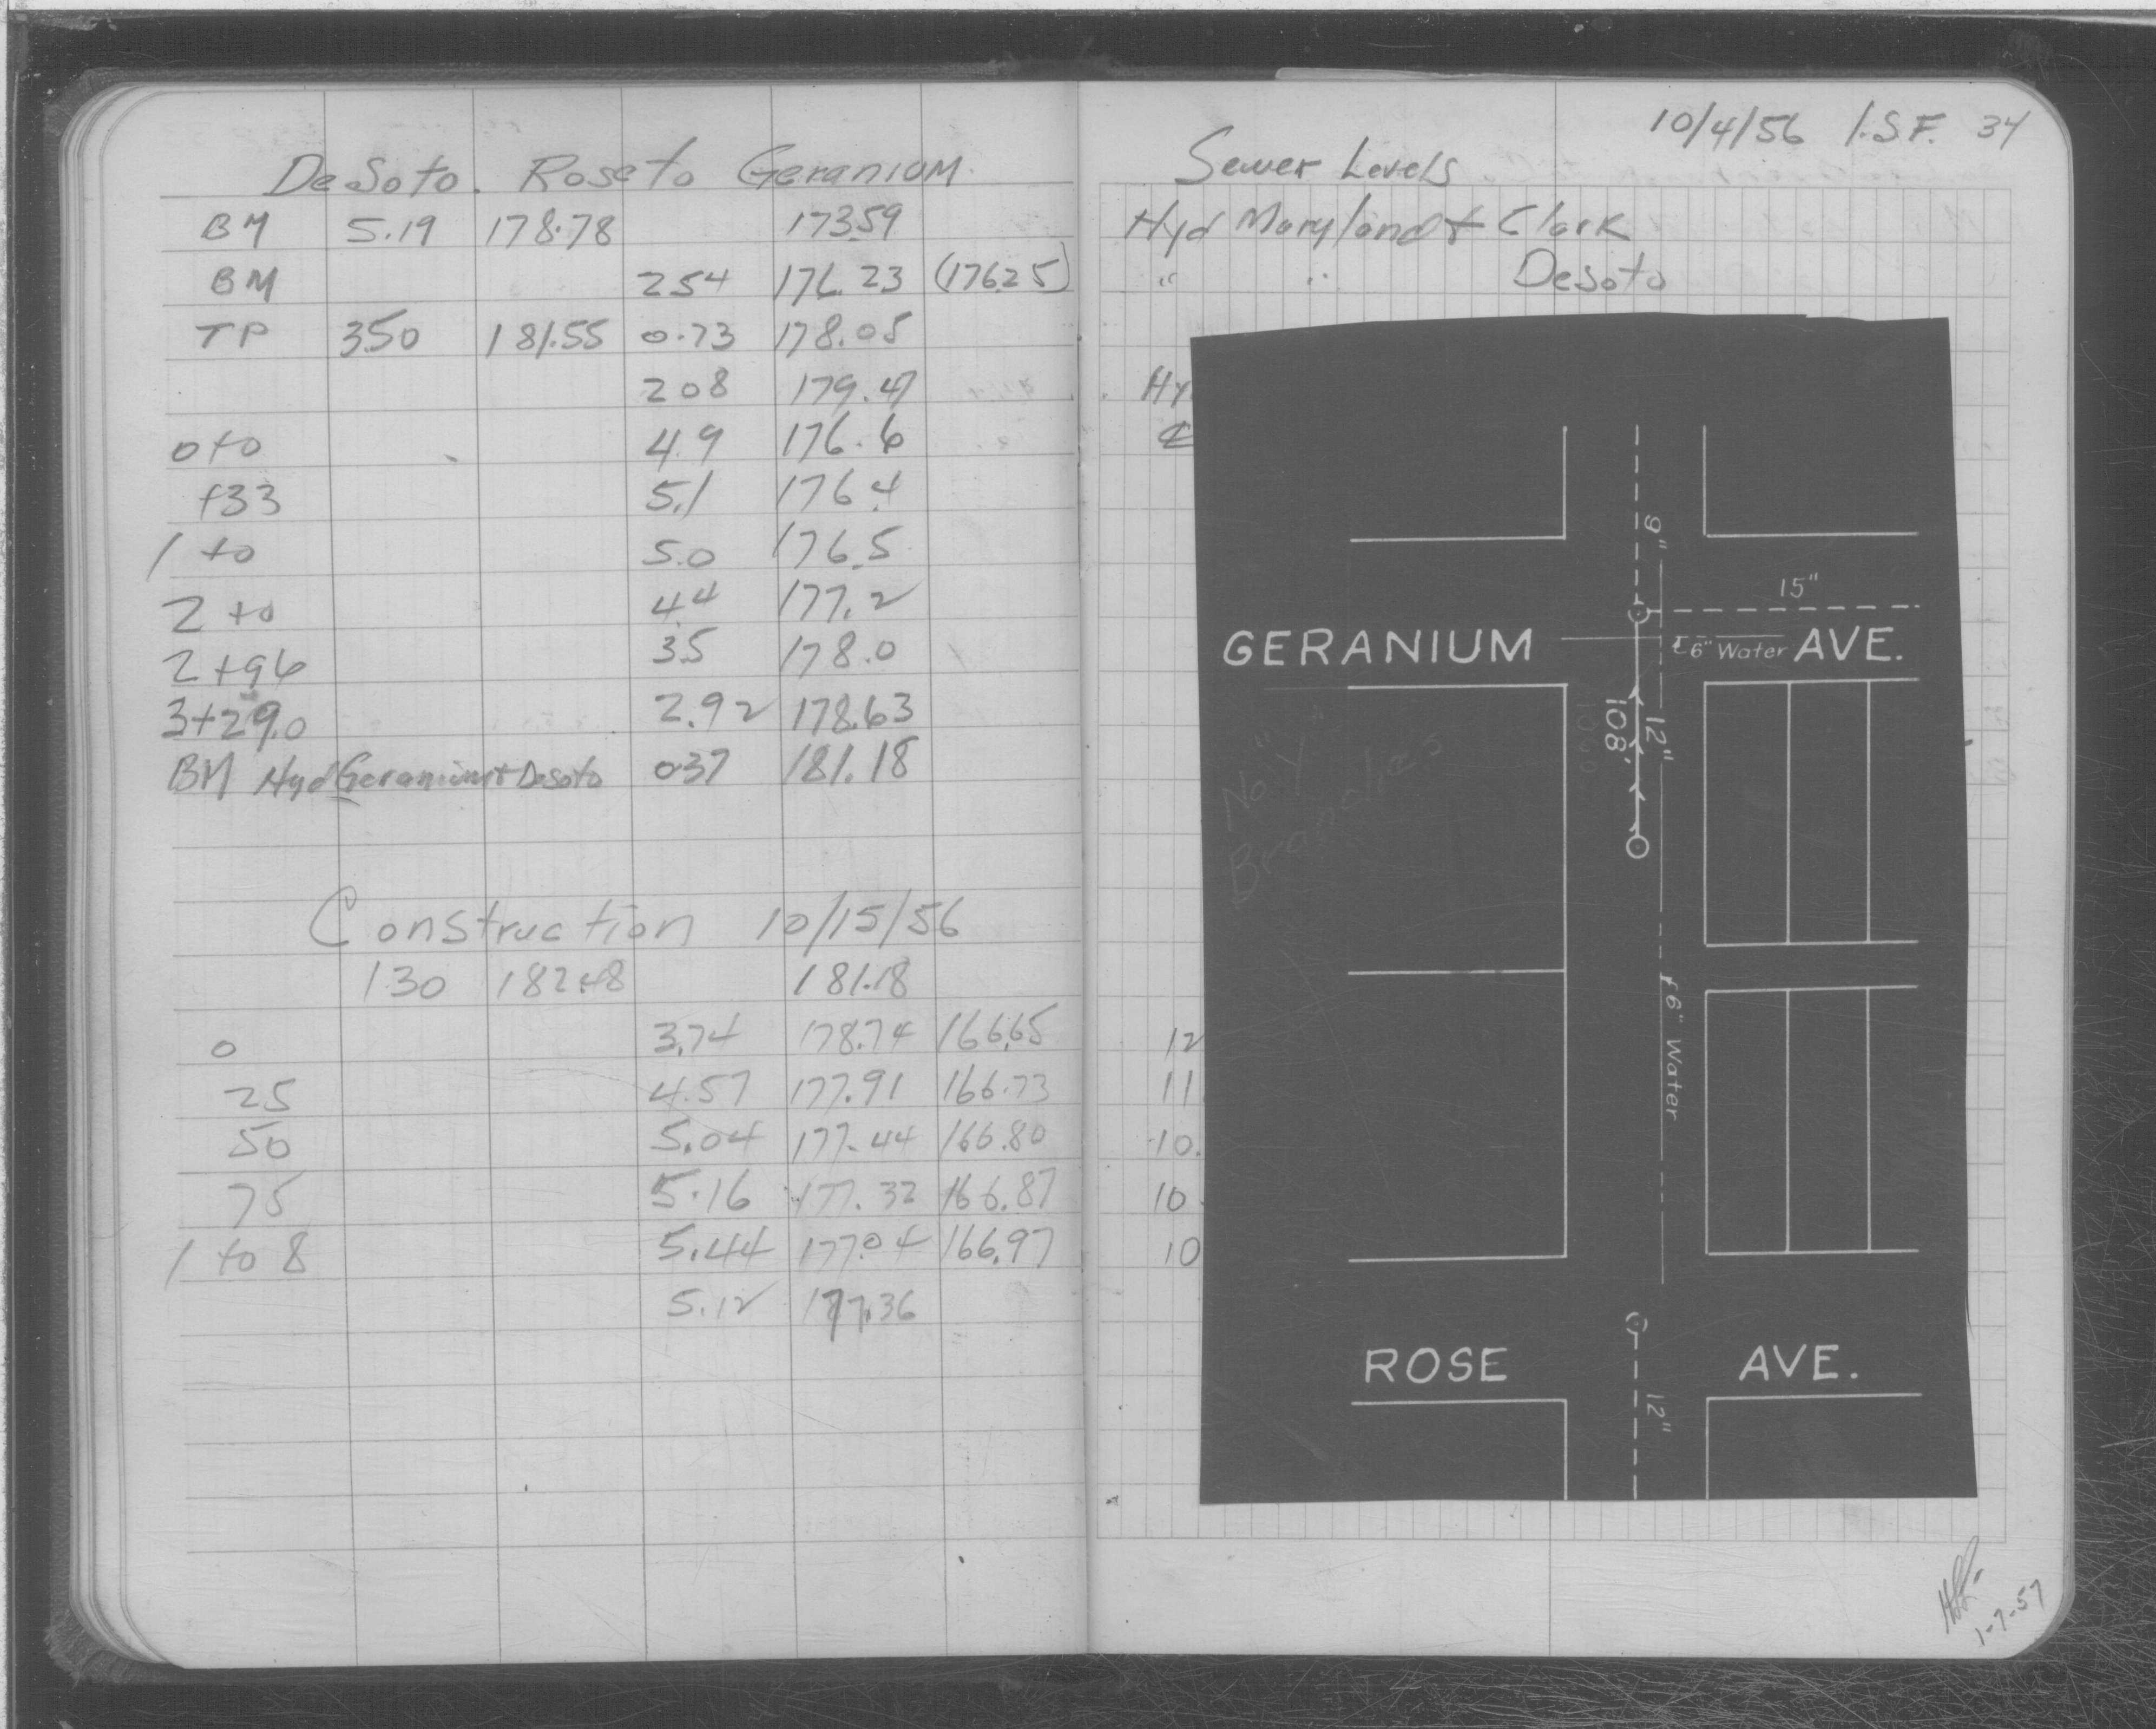 DeSoto. Rose to Geranium
BM 5.19 178.78 173.59
BM 2.54 176.23 (176.25)
TP 3.50 181.55 0.73 178.05
2.08 179.47
0+0 4.9 176.6
+33 5.1 176.4
1+0 5.0 176.5
2+0 4.4 177.2
2+96 3.5 178.0
3+29.0 2.92 178.63
BM Hyd Geranium + Desoto 0.37 181.18
Construction 10/15/56
1.30 182.48 181.18
0 3.74 178.74 166.65
25 4.57 177.91 166.73
50 5.04 177.44 166.80
75 5.16 177.32 166.87
1+08 5.44 177.04 166.97
5.12 177.36
10/4/56 I.S.F. 34
Sewer Levels
Hyd Maryland + Clark
" " Desoto
Hy
℄
12
11
10.
10.
10
9"
15"
GERANIUM AVE.
6" Water
12"
108'
No "Y"
Branches
6" Water
ROSE AVE.
12"
1-7-57